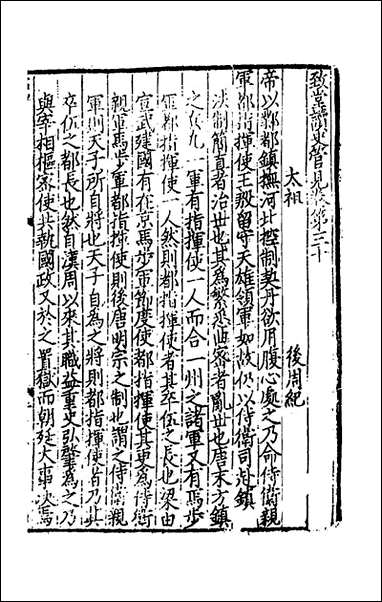 致堂讀史管見卷第三十
太祖 後周紀
帝以鄴都鎮撫河北控制契丹欲用腹心處之乃命侍衛親
軍都指揮使王殷留守天雄領軍如故仍以侍衛司赴鎮
法制簡直者治世也其為繁悉曲密者亂世也唐末方鎮
之兵凡一軍有指揮使一人而合一州之諸軍又有馬步
軍都指揮使一人然則都指揮使者其卒伍之長也梁由
宣武建國有在京馬步軍節度使都指揮使其更為侍衛
親軍馬步軍都指揮使則後唐明宗之制也謂之侍衛親
軍則天子所自將也天子自為之將則都指揮使者乃其
卒伍之都長也然自漢周以來其職益重史弘肇為之乃
與宰相樞密使共執國政又於之置獄而朝廷大事決焉